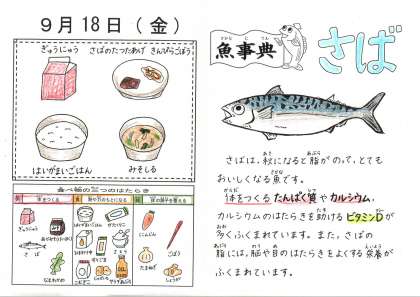 9月18日（金）
ぎゅうにゅう さばのたつたあげ きんぴらごぼう
はいがまいごはん みそしる
食べ物の三つのはたらき
ぎゅうにゅう
さば
にんじん
ごぼう
たまねぎ
しょうが
魚事典
さば
さばは、秋になると脂がのって、とても
おいしくなる魚です。
体をつくるたんぱく質やカルシウム、
カルシウムのはたらきを助けるビタミンDが
多くふくまれています。また、さばの
脂には、脳や目のはたらきをよくする栄養が
ふくまれています。